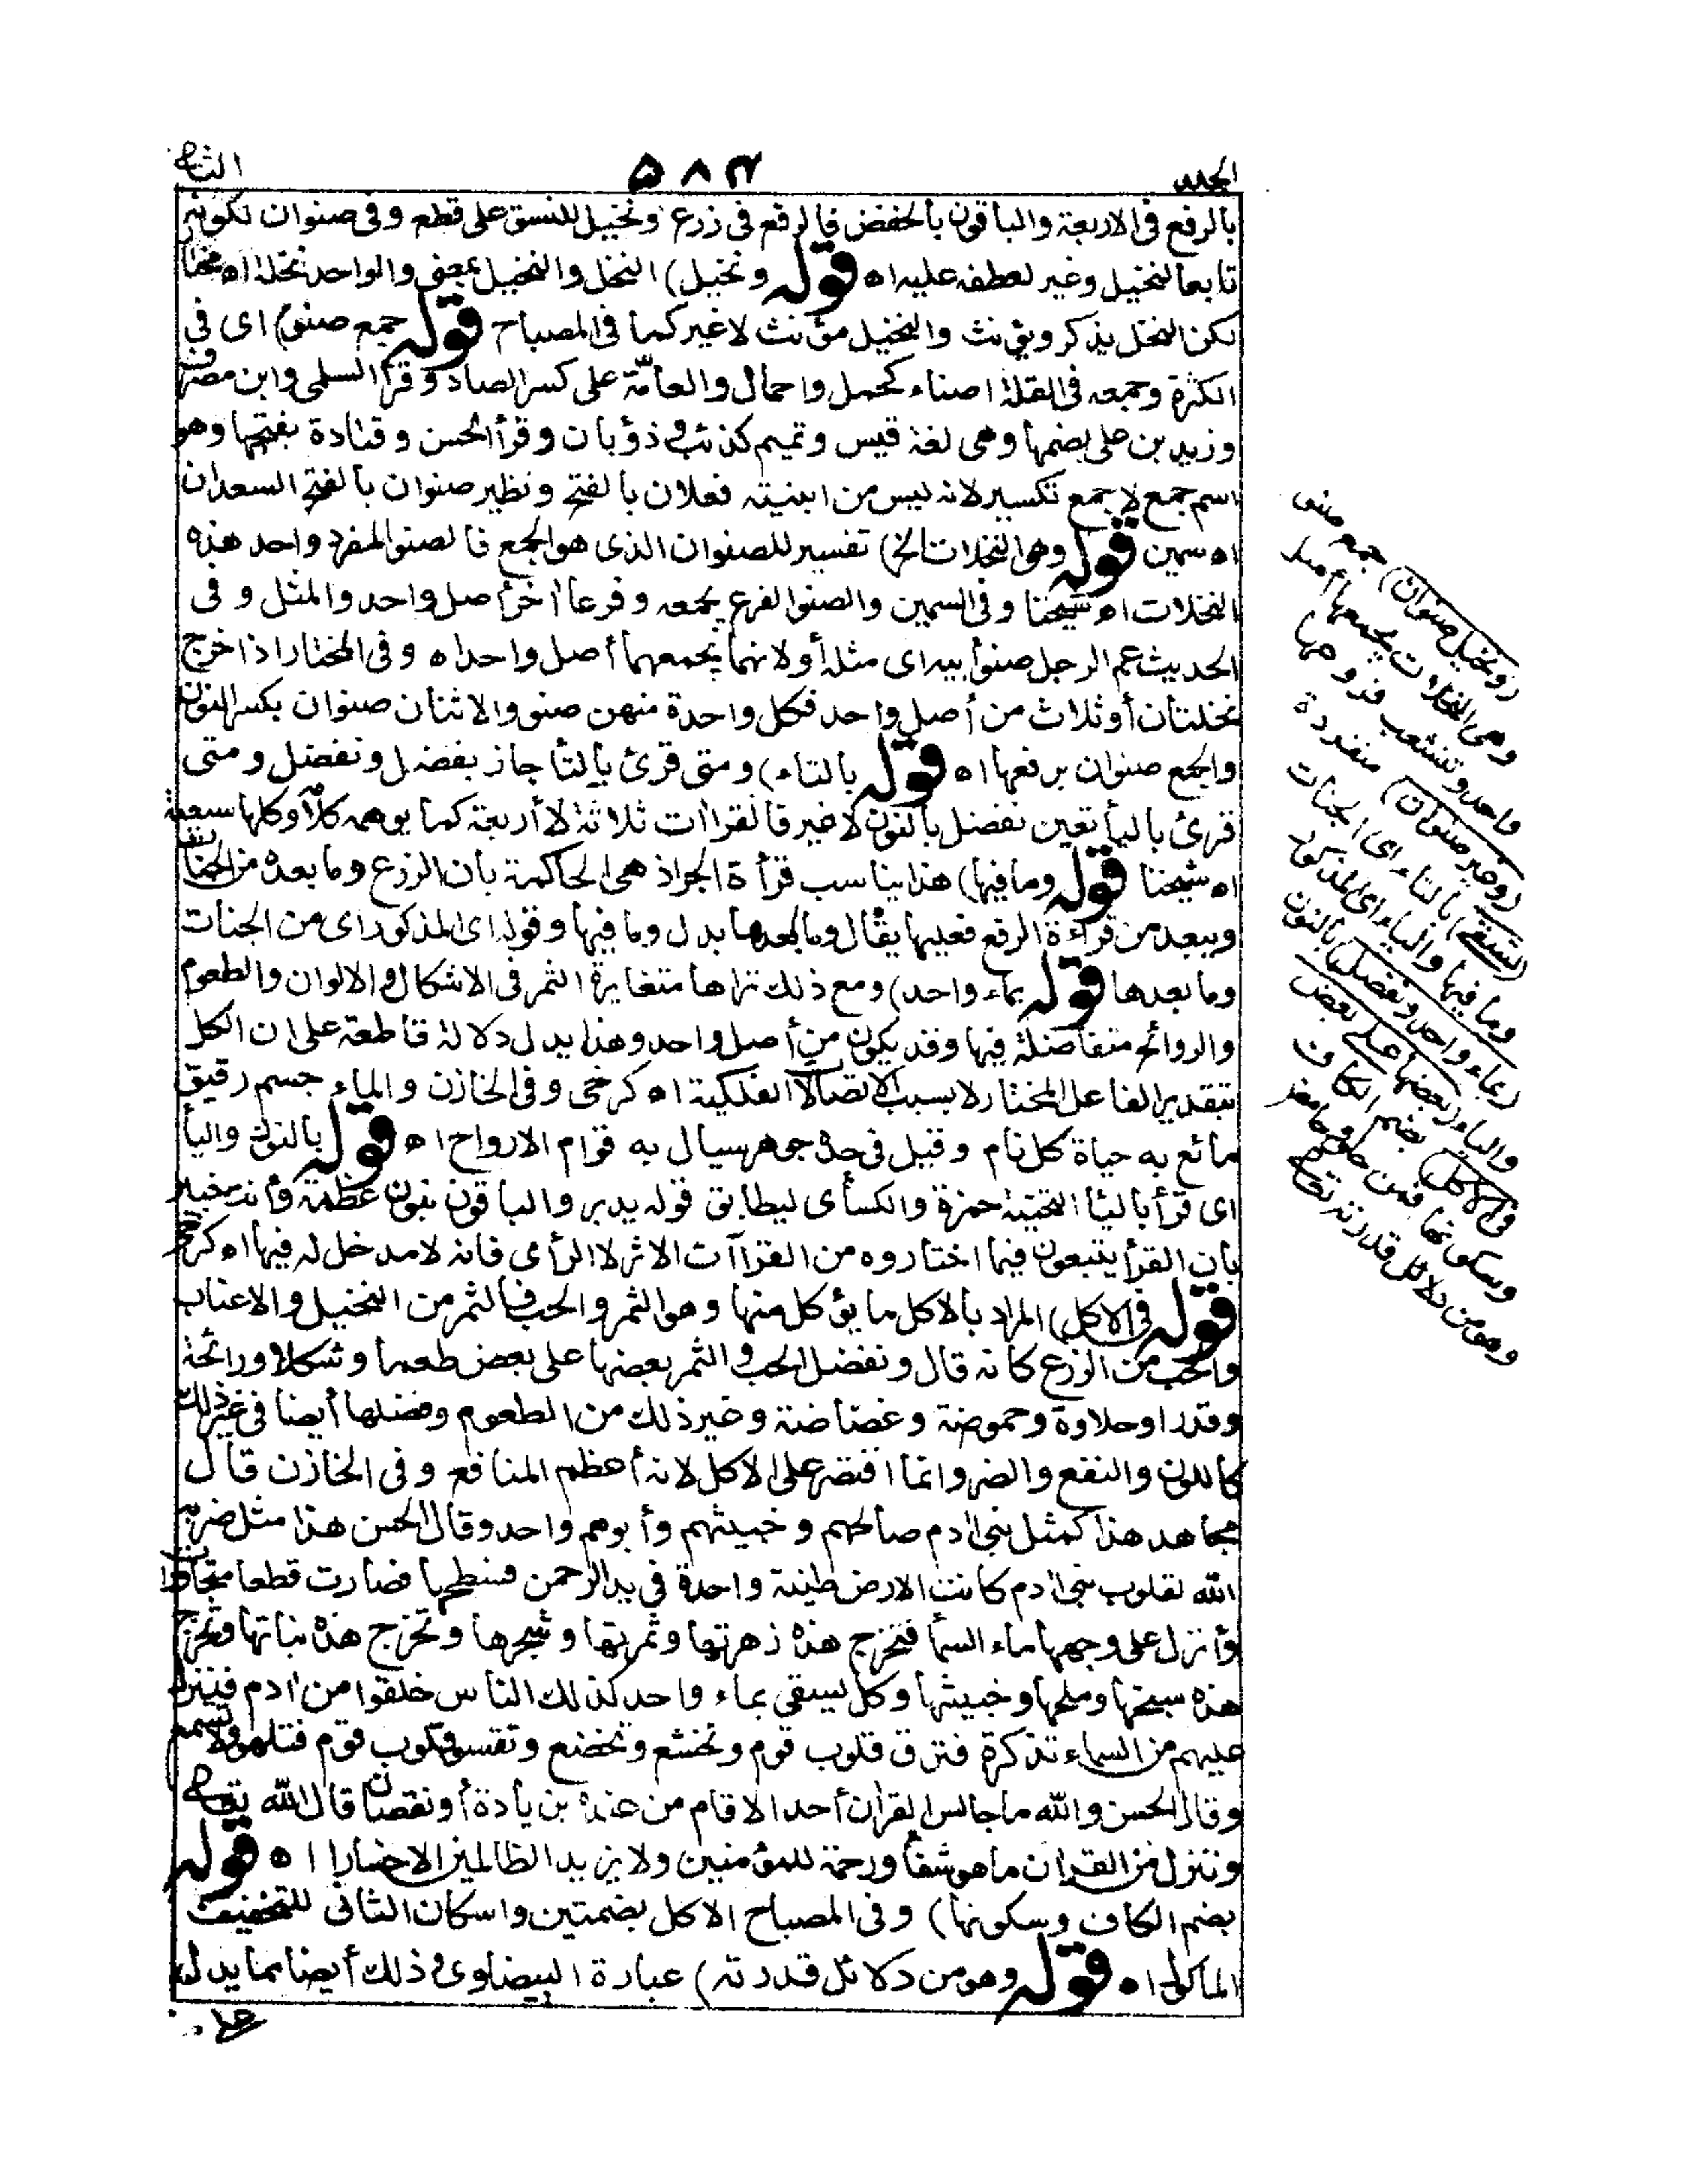 الجلد
۵۸۴
الثانى
بالرفع فى الاربعة والباقون بالخفض فالرفع فى زرع ونخيل للنسق على قطع وفى صنوان لكونه
تابعا لنخيل وغير لعطفه عليه اه قوله ونخيل) النخل والنخيل بمعنى والواحد نخلة اه مختار
لكن النخل يذكر ويؤنث والنخيل مؤنث لا غير كما فى المصباح قوله جمع صنو) اى فى
الكثرة وجمعه فى القلة اصناء كحمل واحمال والعامّة على كسر الصاد وقرأ السلمى وابن مصرف
وزيد بن على بضمها وهى لغة قيس وتميم كذئب وذؤبان وقرأ الحسن وقتادة بفتحها وهو
اسم جمع لا جمع تكسير لانه ليس من ابنيته فعلان بالفتح ونظير صنوان بالفتح السعدان
اه سمين قوله وهى النخلات الخ) تفسير للصنوان الذى هو الجمع فالصنو المفرد واحد هذه
النخلات اه شيخنا وفى السمين والصنو الفرع يجمعه وفرعا اخر أصل واحد والمثل وفى
الحديث عم الرجل صنو أبيه اى مثله أو لانهما يجمعهما أصل واحد اه وفى المختار اذا خرج
نخلتان أو ثلاث من أصل واحد فكل واحدة منهن صنو والاثنان صنوان بكسر النون
والجمع صنوان برفعها اه قوله بالتاء) ومتى قرئ بالتأ جاز يفضل ونفضل ومتى
قرئ باليأ تعين نفضل بالنون لا غير فالقراات ثلاثة لا أربعة كما يوهمه كلامه وكلها سبعية
اه شيخنا قوله وما فيها) هذا يناسب قرأة الجر اذ هى الحاكمة بان الزرع وما بعده من الجنات
ويبعد من قراءة الرفع فعليها يقال وما بعدها بدل وما فيها وقوله اى المذكور اى من الجنات
وما بعدها قوله بماء واحد) ومع ذلك تراها متغايرة الثمر فى الاشكال والالوان والطعوم
والروائح متفاضلة فيها وقد يكون من أصل واحد وهذا يدل دلالة قاطعة على ان الكل
بتقدير الفاعل المختار لا بسبب الاتصالات الفلكية اه كرخى وفى الخازن والماء جسم رقيق
مائع به حياة كل نام وقيل فى حدّه جوهر سيال به قوام الارواح اه قوله بالنون واليأ
اى قرأ باليأ التحتية حمزة والكسأى ليطابق قوله يدبر والباقون بنون عظمة وأنت خبير
بان القرأ يتبعون فيما اختاروه من القراآت الاثر لا الرأى فانه لا مدخل له فيها اه كرخى
قوله فى الاكل) المراد بالاكل ما يؤكل منها وهو الثمر والحب فالثمر من النخيل والاعناب
والحب من الزرع كانه قال ونفضل الحب والثمر بعضها على بعض طعما وشكلا ورائحة
وقدرا وحلاوة وحموضة وغضاضة وغير ذلك من الطعوم وفضلها أيضا فى غير ذلك
كاللون والنفع والضر وانما اقتصر على الاكل لانه أعظم المنافع وفى الخازن قال
مجاهد هذا كمثل بنى ادم صالحهم وخبيثهم وأبوهم واحد وقال الحسن هذا مثل ضربه
الله لقلوب بنى ادم كانت الارض طينة واحدة فى يد الرحمن فسطحها فصارت قطعا متجاورات
وأنزل على وجهها ماء السمأ فتخرج هذه زهرتها وثمرتها وشجرها وتخرج هذه نباتها وتخرج
هذه سبخها وملحها وخبيثها وكل يسقى بماء واحد كذلك الناس خلقوا من ادم فينزل
عليهم من السماء تذكرة فترق قلوب قوم وتخشع وتخضع وتقسو قلوب قوم فتلهو ولا تسمع
وقال الحسن والله ما جالس القران أحد الا قام من عنده بزيادة أو نقصان قال الله تعالى
وننزل من القران ما هو شفأ ورحمة للمؤمنين ولا يزيد الظالمين الا خسارا اه قوله
بضم الكاف وسكونها) وفى المصباح الاكل بضمتين واسكان الثانى للتخفيف
المأكول اه قوله وهو من دلائل قدرته) عبارة البيضاوى وذلك أيضا مما يدل
(ونخيل صنوان) جمع صنو
وهى النخلات يجمعها أصل
واحد وتتشعب فروعها
(وغير صنوان) منفردة
(تسقى) بالتاء اى الجنات
وما فيها والياء اى المذكور
(بماء واحد ونفضل) بالنون
والياء (بعضها على بعض
فى الاكل) بضم الكاف
وسكونها فمن حلو وحامض
وهو من دلائل قدرته تعالى